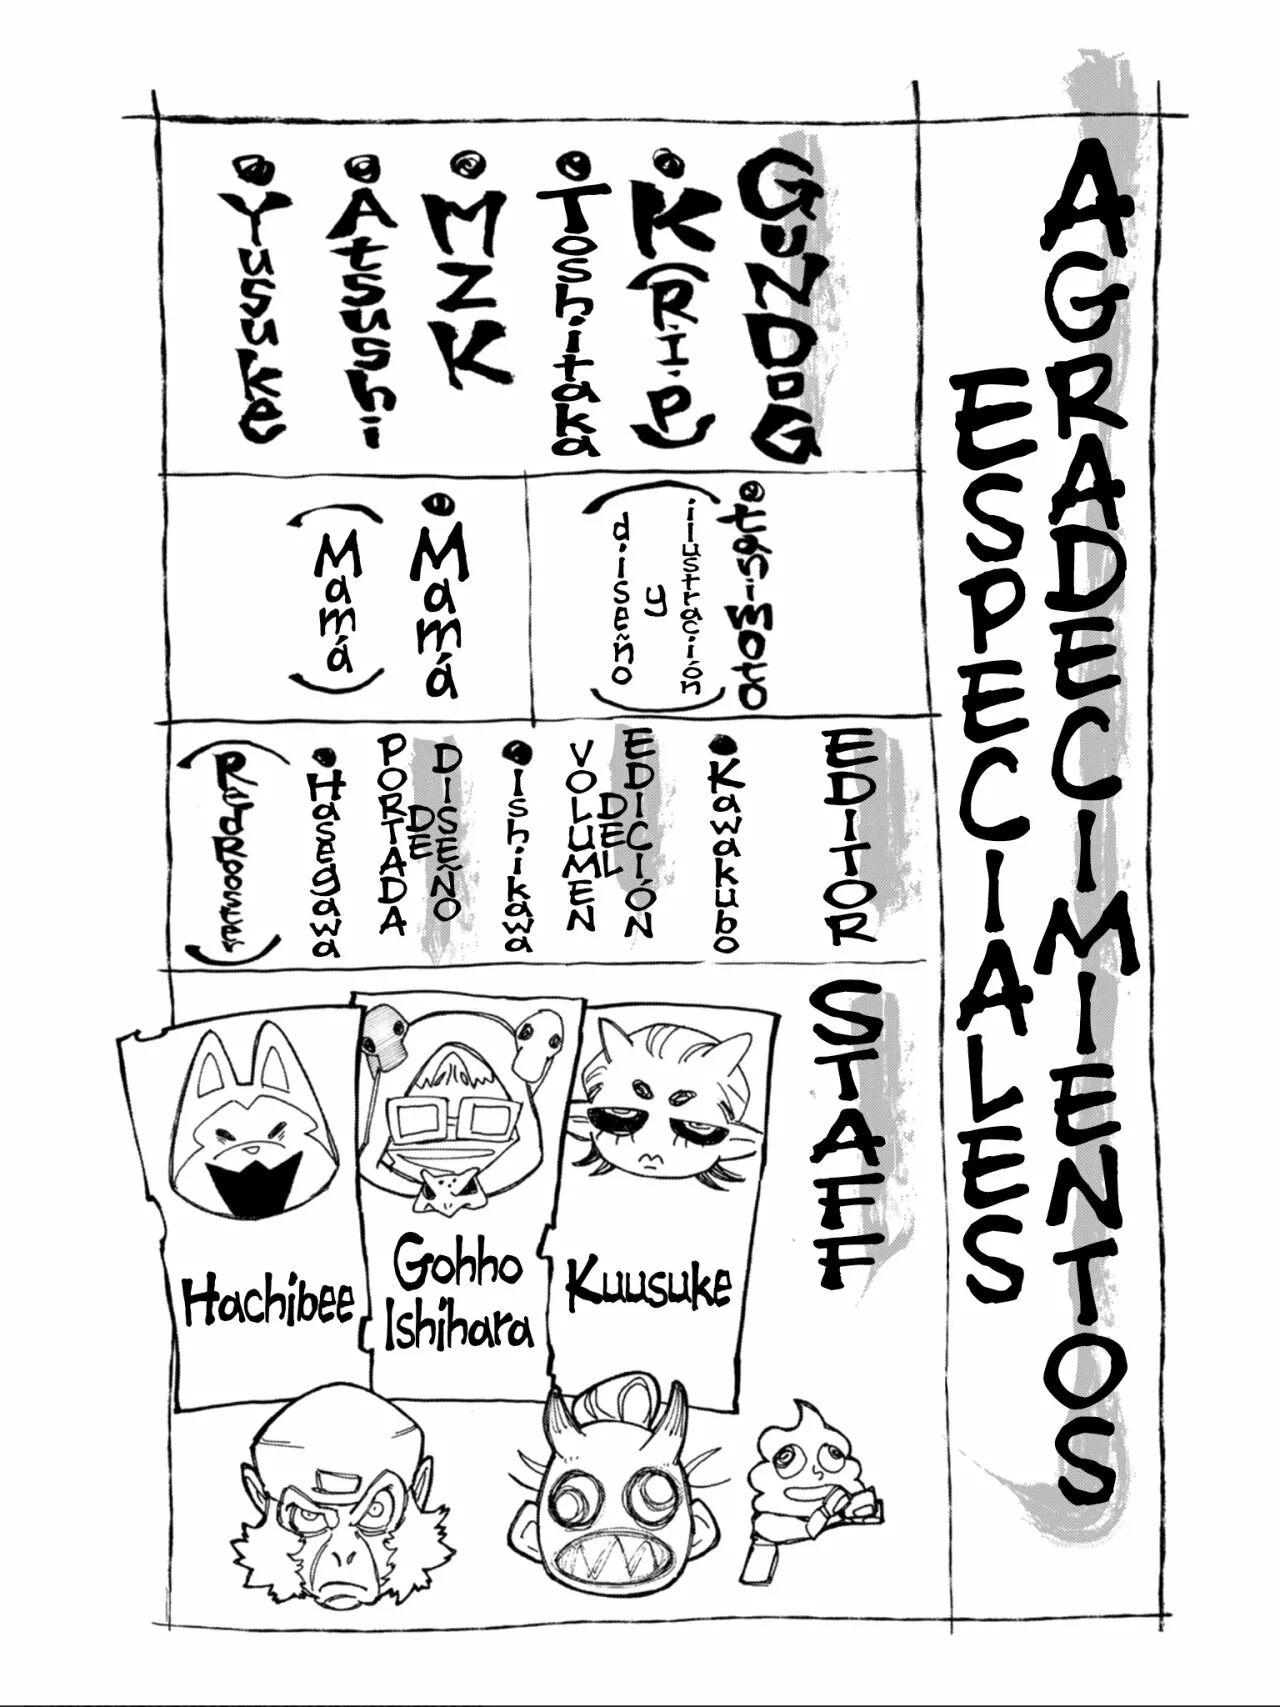 AGRADECIMIENTOS
ESPECIALES
GUNDOG
K (R.i.P)
Toshitaka
MZK
Atsushi
Yusuke
tanimoto
(ilustración
y
diseño)
Mamá
(Mamá)
EDITOR
Kawakubo
EDICIÓN
DEL
VOLUMEN
Ishikawa
DISEÑO
DE
PORTADA
Hasegawa
STAFF
Kuusuke
Gohho
Ishihara
Hachibee